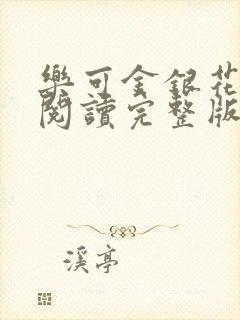 樂可金銀花
閱讀完整版
溪亭